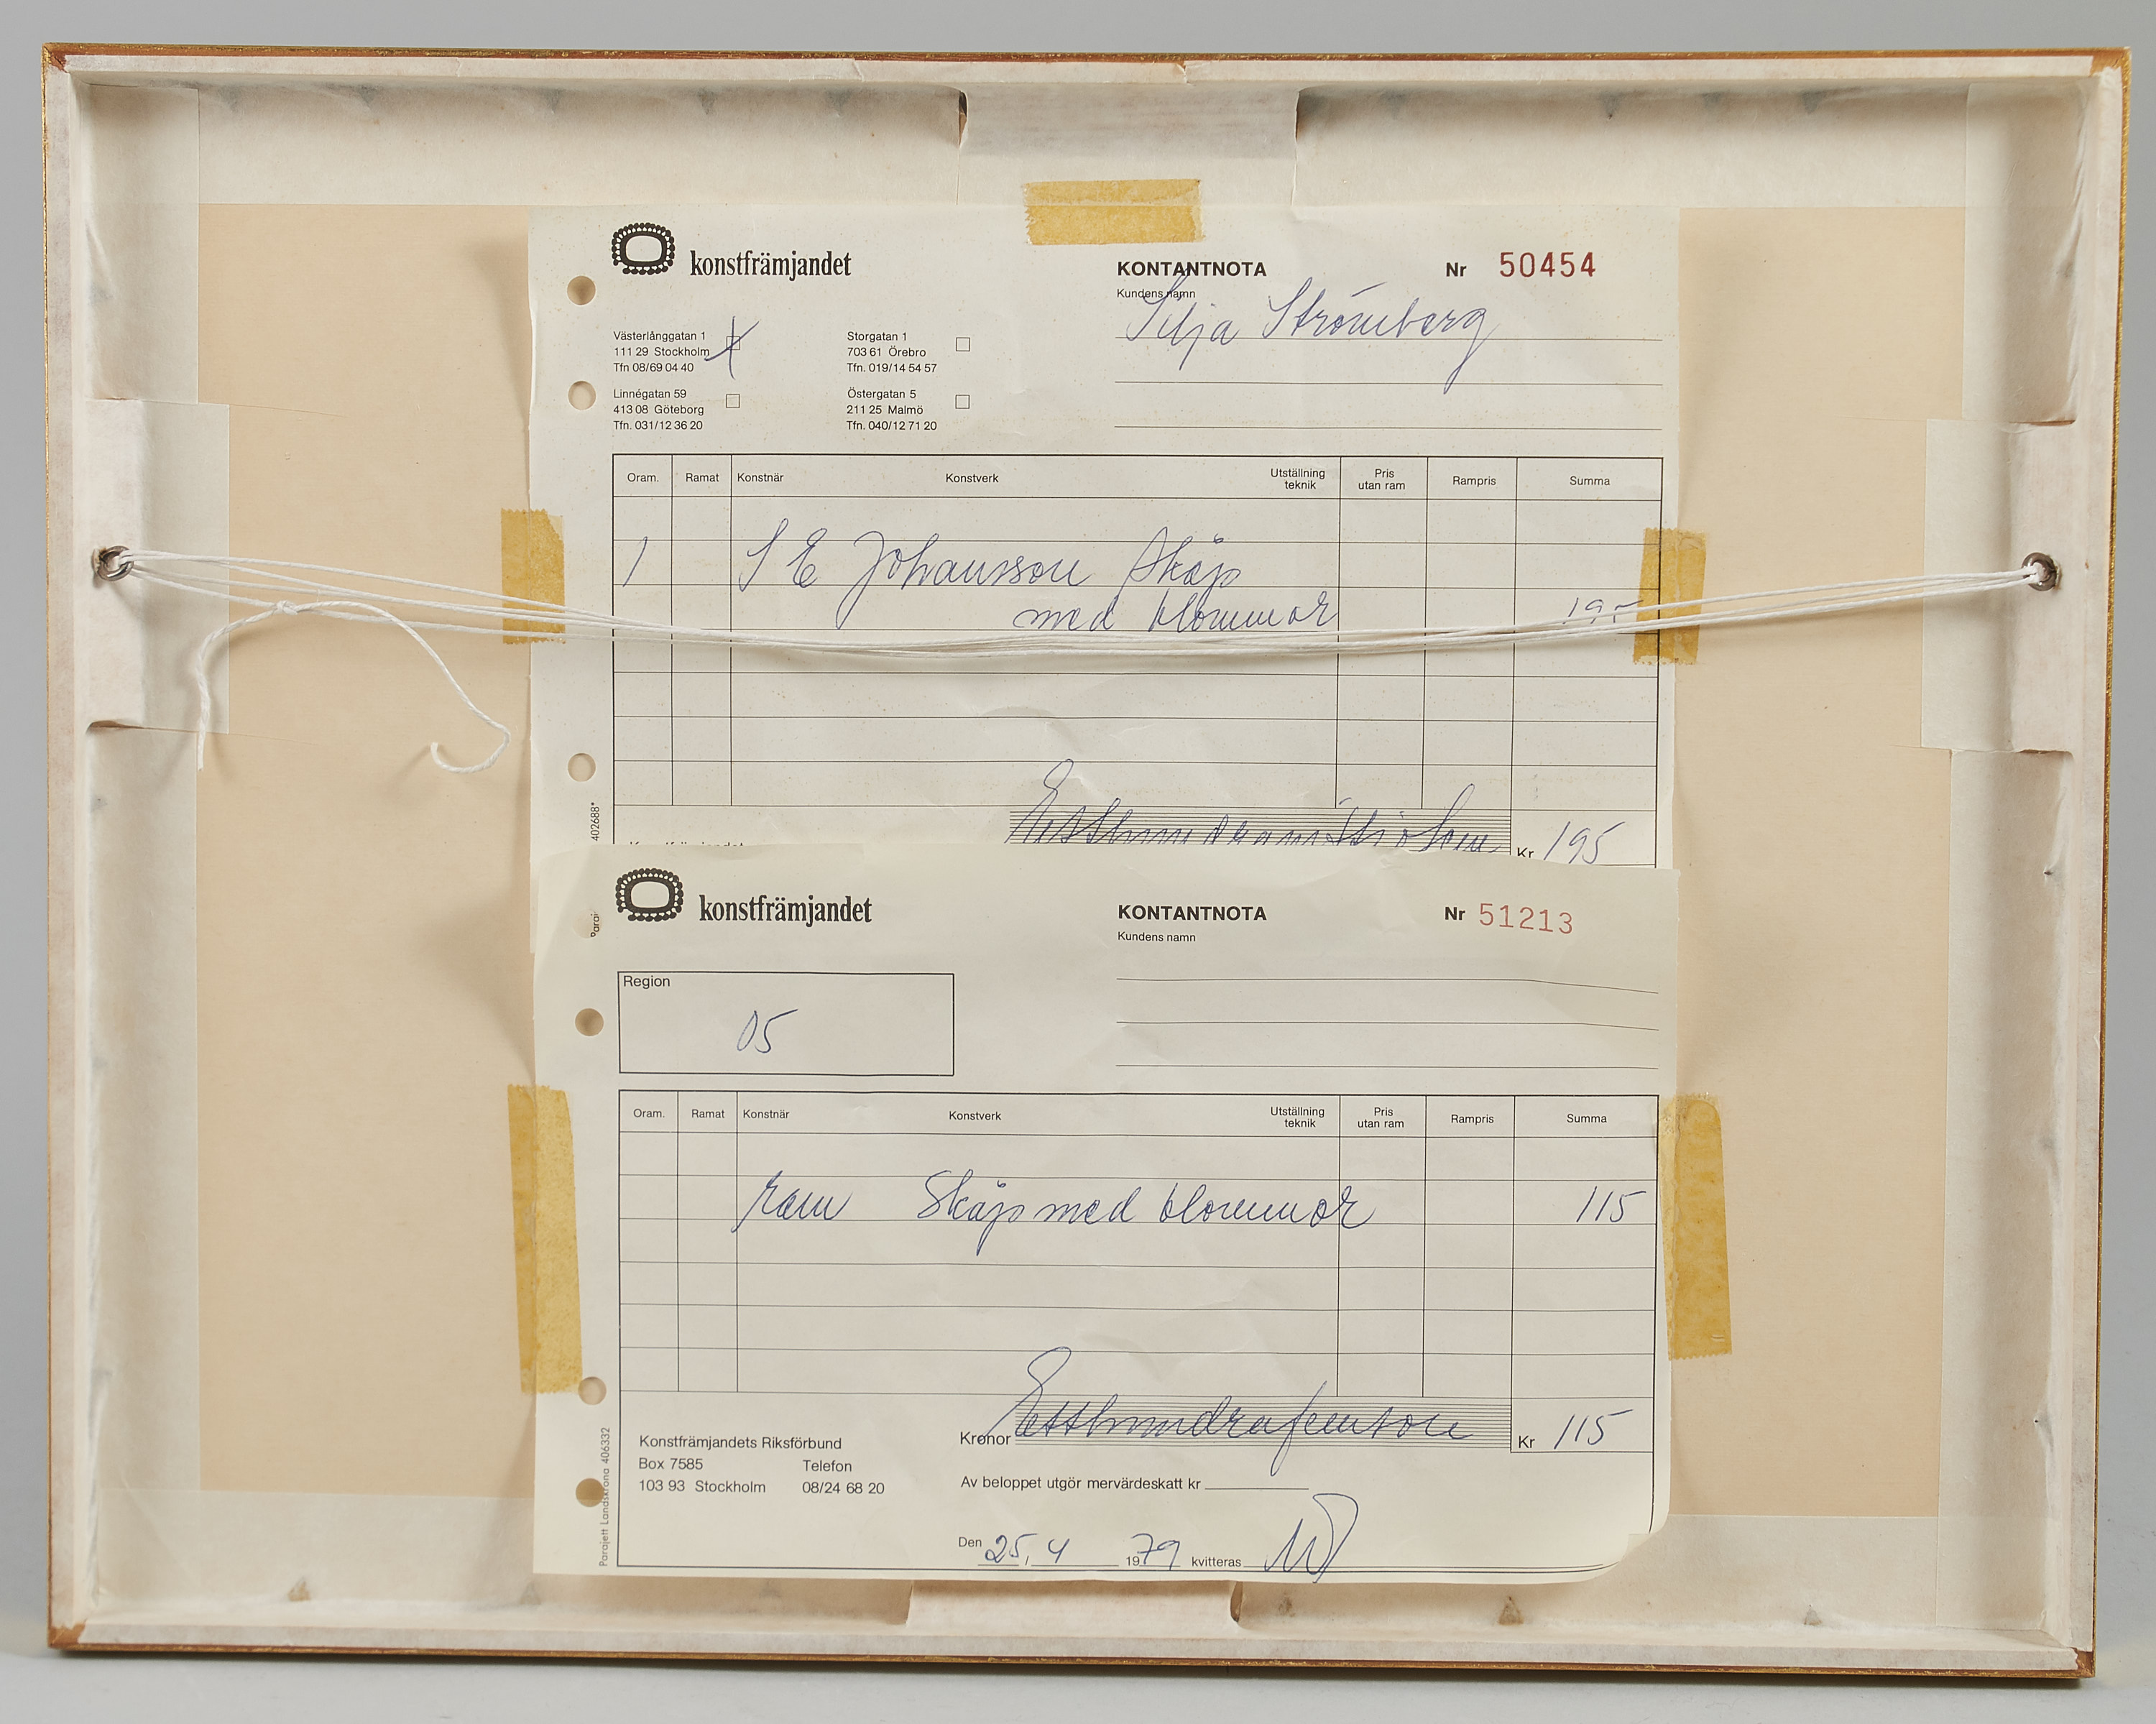 konstfrämjandet
KONTANTNOTA Nr 50454
Kundens namn
Silja Strömberg
Västerlånggatan 1
111 29 Stockholm
Tfn 08/69 04 40
Storgatan 1
703 61 Örebro
Tfn. 019/14 54 57
Linnégatan 59
413 08 Göteborg
Tfn. 031/12 36 20
Östergatan 5
211 25 Malmö
Tfn. 040/12 71 20
Oram. Ramat Konstnär Konstverk Utställning teknik Pris utan ram Rampris Summa
1 S E Johansson Skåp
med blommor 195
Kr 195
402688*
konstfrämjandet
KONTANTNOTA Nr 51213
Kundens namn
Region
05
Oram. Ramat Konstnär Konstverk Utställning teknik Pris utan ram Rampris Summa
ram Skåp med blommor 115
Kronor Etthundrafemton Kr 115
Konstfrämjandets Riksförbund
Box 7585 Telefon
103 93 Stockholm 08/24 68 20
Av beloppet utgör mervärdeskatt kr
Den 25,4 1979 kvitteras
Parajett Landskrona 406332